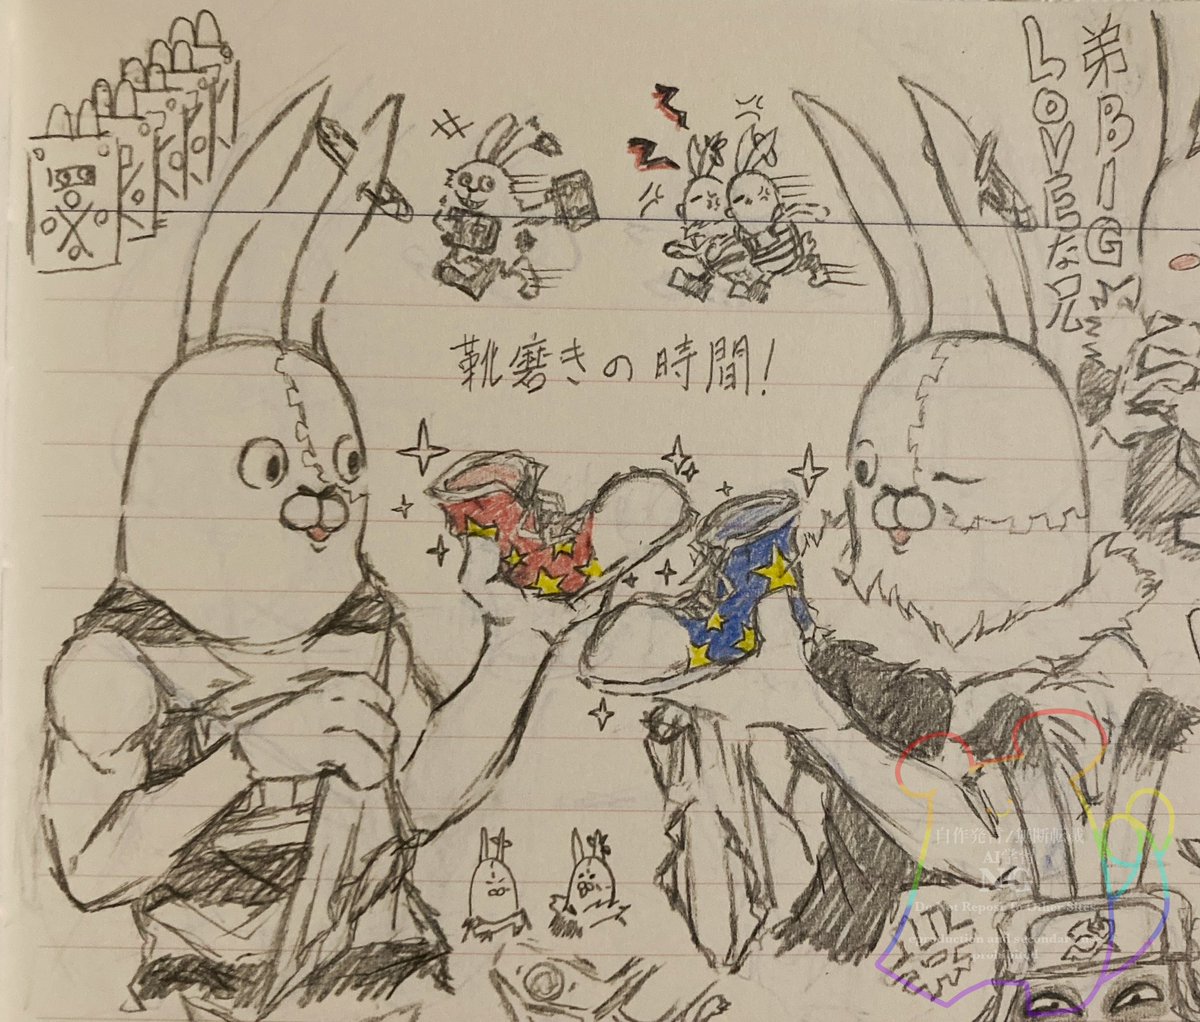 弟BIG
LOVEな兄
靴磨きの時間!
自作発言/無断転載
AI学習
NG
Do Not Repost To Other Sites
eproduction and secondary use
prohibited